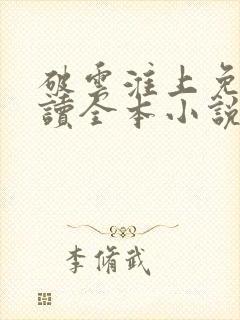 破雲淮上免
讀全本小說
李脩武